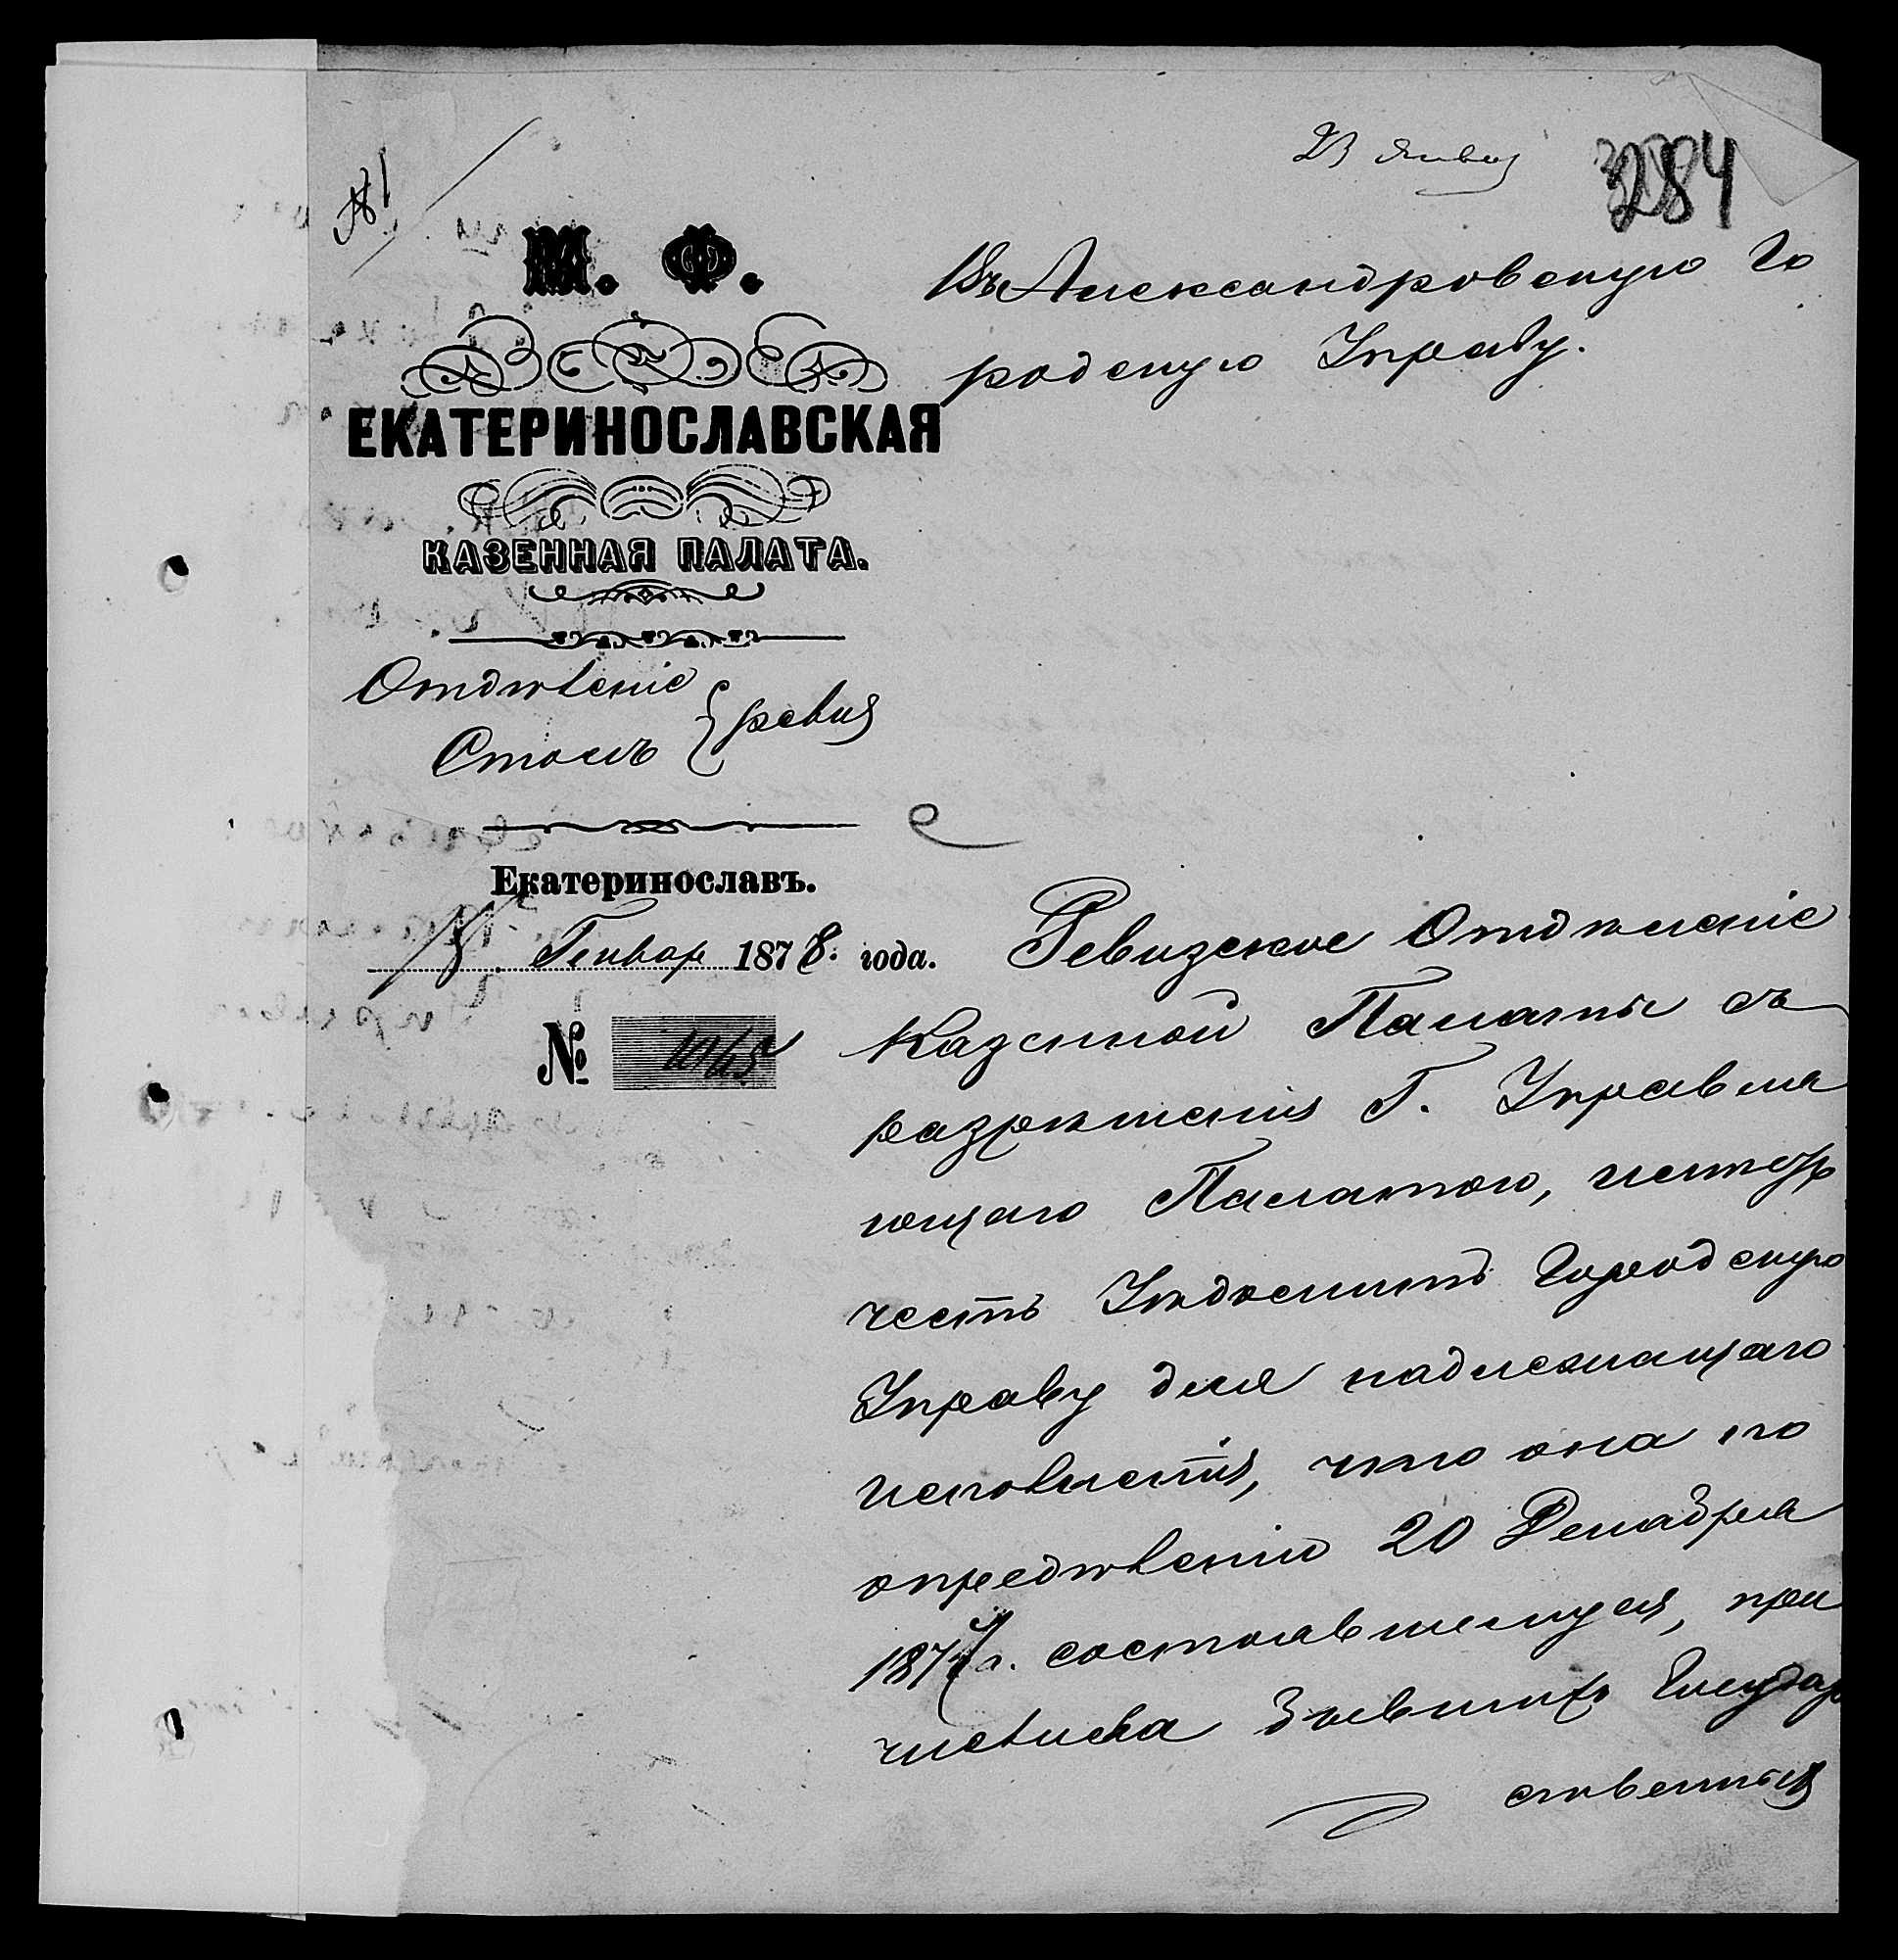 № 1
23 Янва
3284
М. Ф.
ЕКАТЕРИНОСЛАВСКАЯ
КАЗЕННАЯ ПАЛАТА.
Отдѣленіе
Столъ
ревиз
Екатеринославъ.
Генвар 1878. года.
№
Въ Александровскую Го
родскую Управу.
Ревизское Отдѣленіе
Казенной Палаты съ
разрѣшенія Г. Управля
ющаго Палатою, имѣетъ
честь Увѣдомить Городскую
Управу для надлежащаго
исполненія, что она по
опредѣленію 20 Декабря
1877 г. состоявшемуся, при
числила бывшихъ Государ
ственныхъ